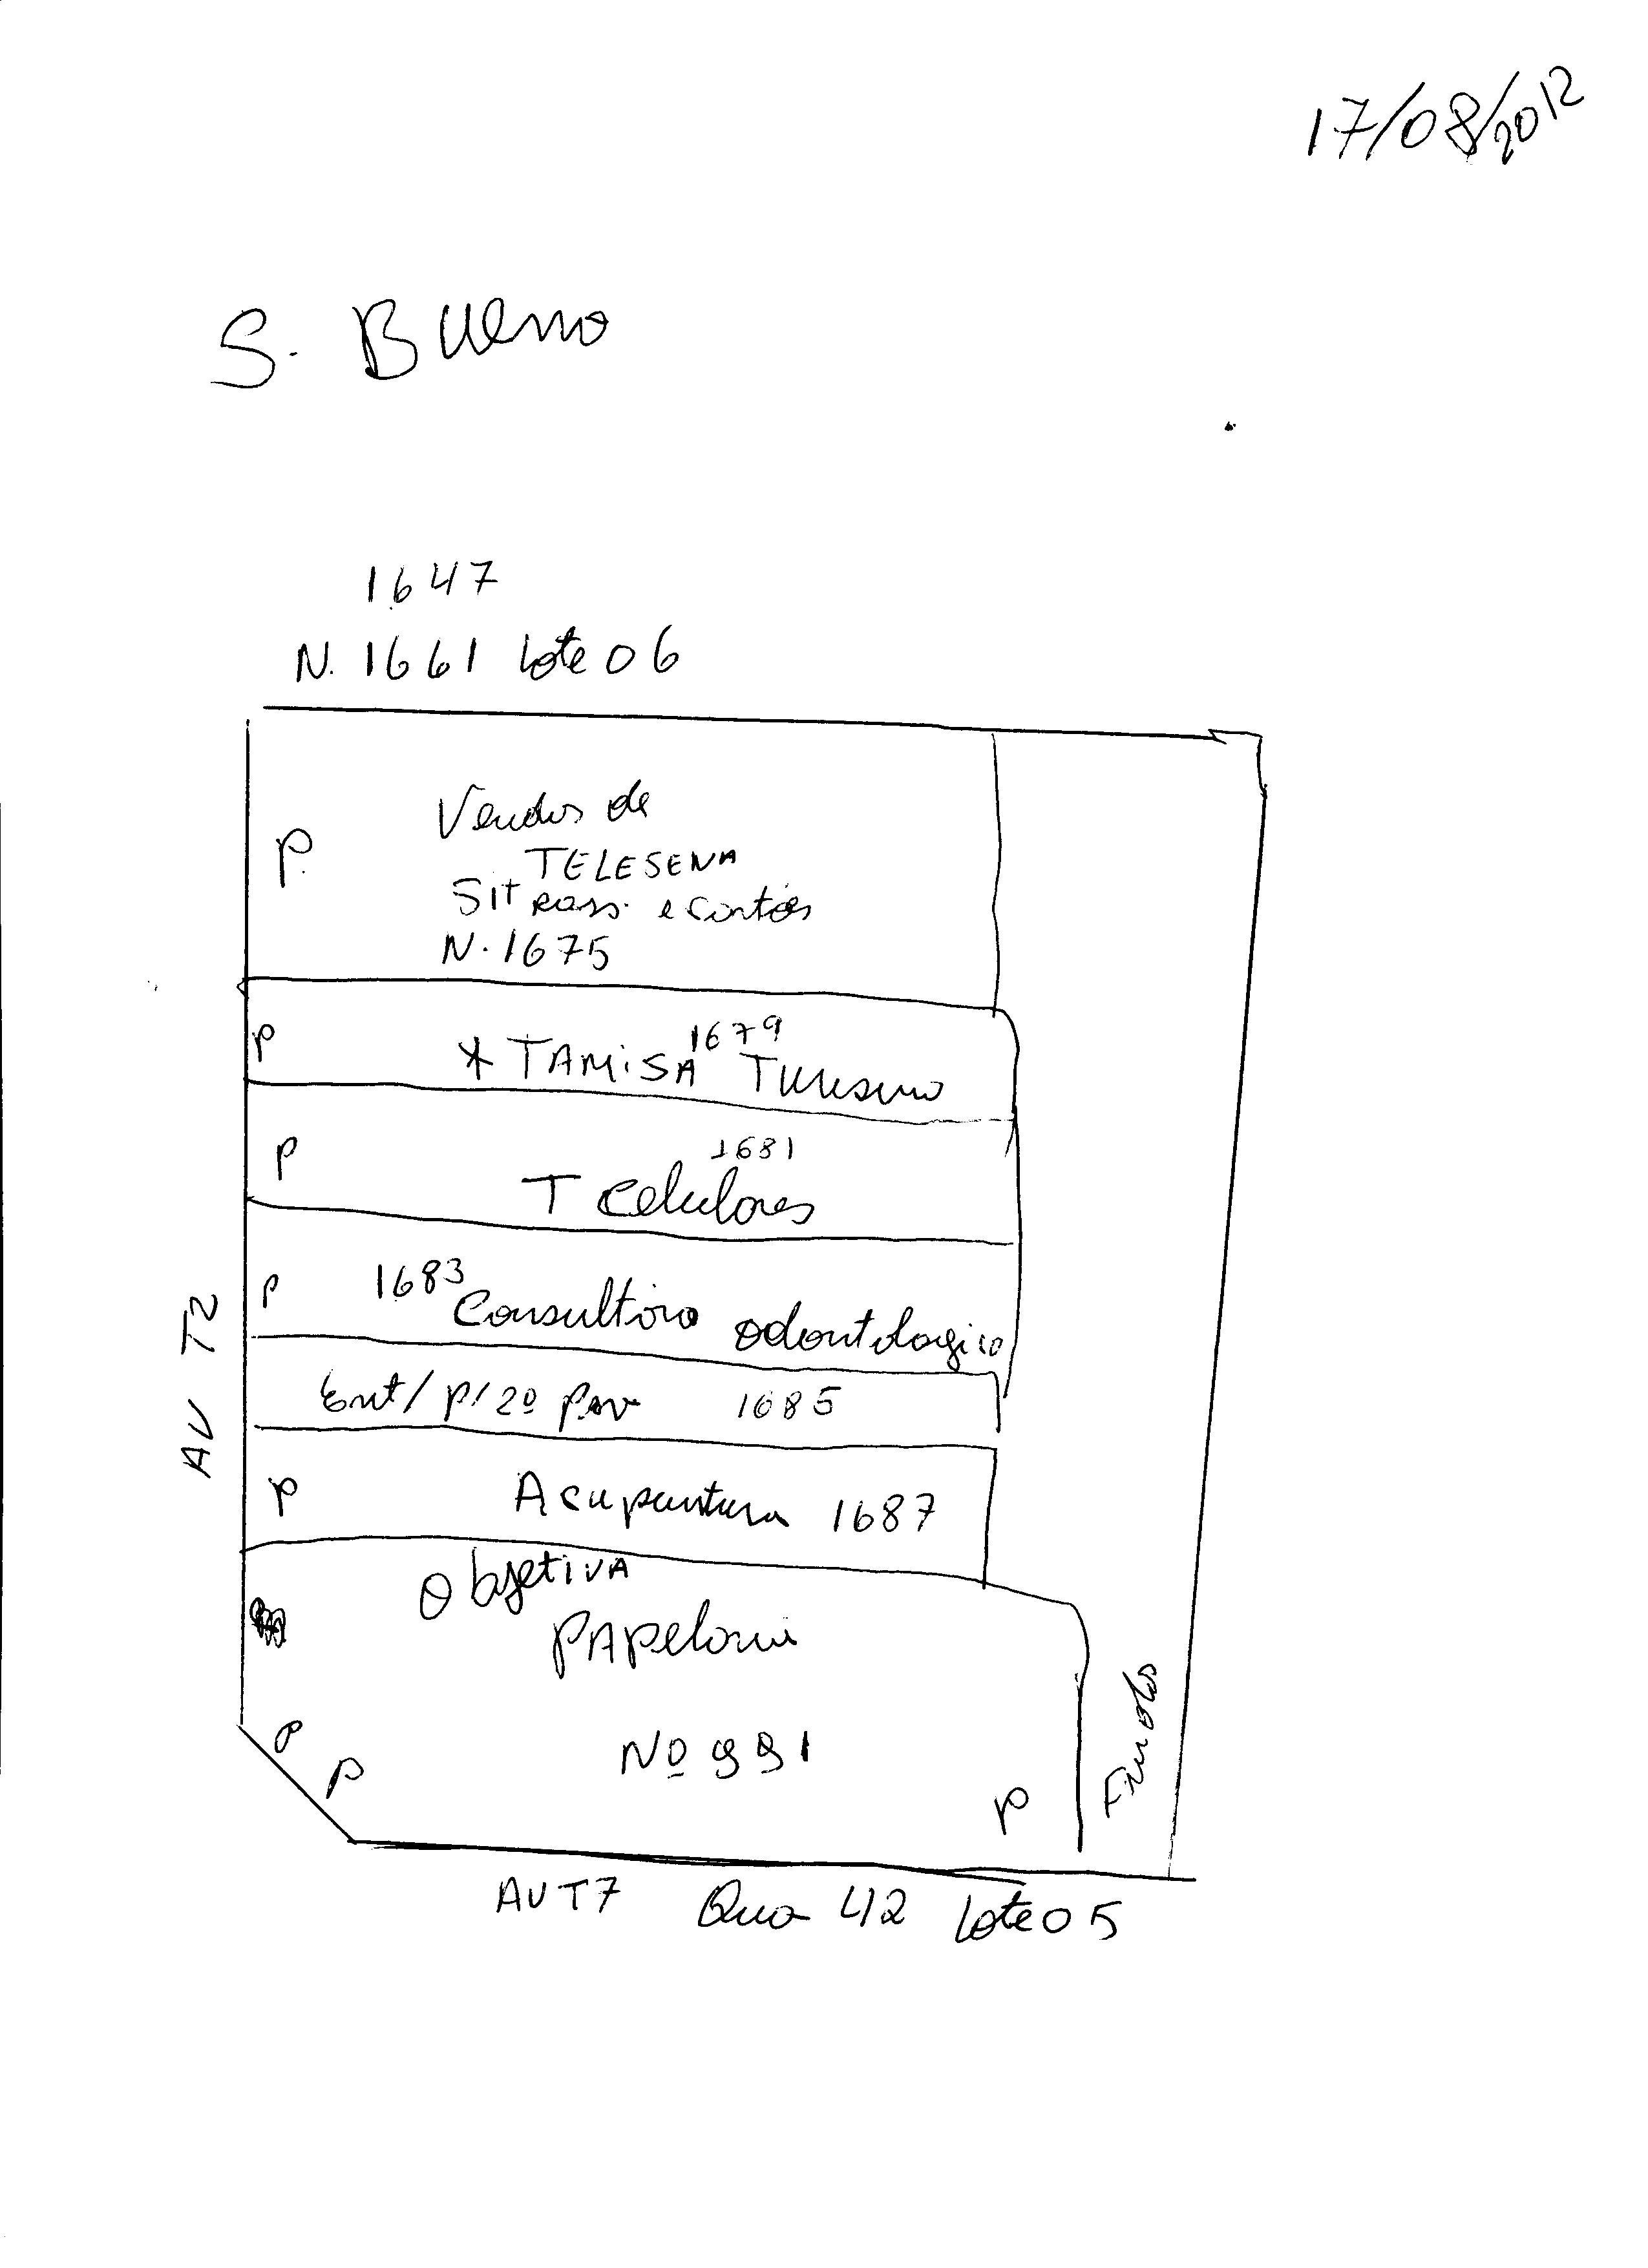 17/08/2012
S. Bueno
1647
N. 1661 Lote 06
P Vendas de
TELESENA
Sit pass. e cartões
N. 1675
P * TAMISA 1679 Turismo
P T Celulares 1681
P 1683 Consultório odontologico
Ent/ p/ 2º Pav 1685
P Acupuntura 1687
Objetiva
PAPelaria
Nº 991
P
P
P
Fundos
AV T2
AV T7 Qua 42 Lote 05